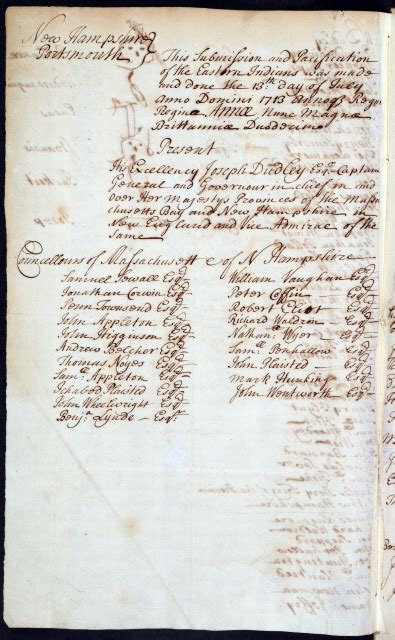 New Hampshire
Portsmouth
This Submission and Pacification
of the Eastern Indians was made
and done the 13th day of July
Anno Domini 1713 Annoq Regni
Reginæ Annæ Nunc Magnæ
Brittanniæ Duodecimo
Present
His Excellency Joseph Dudley Esqr Captain
General and Governour in chief in and
over Her Majestys Provinces of the Massa
chusetts Bay and New Hampshire in
New England and Vice Admiral of the
Same
Councellours of Massachusett
Samuel Sewall Esqr
Jonathan Corwin Esqr
Penn Townsend Esqr
John Appleton Esqr
John Higginson Esqr
Andrew Belcher Esqr
Thomas Noyes Esqr
Samll Appleton Esqr
Ichabod Plaisted Esqr
John Wheelwright Esqr
Benja Lynde Esqr
of N Hampshire
William Vaughan Esqr
Peter Coffin Esqr
Robert Eliot Esqr
Richard Waldron Esqr
Nathan Esqr
Saml Penhallow Esqr
John Plaisted Esqr
Mark Hunking Esqr
John Wentworth Esqr